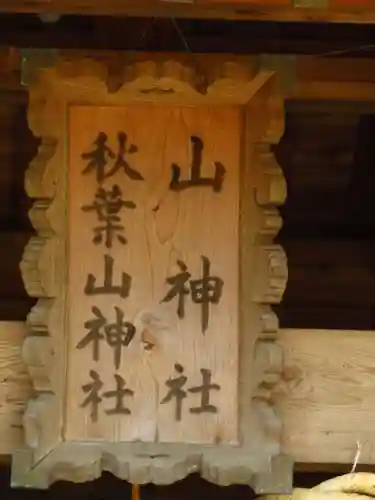 山神社
秋葉山神社